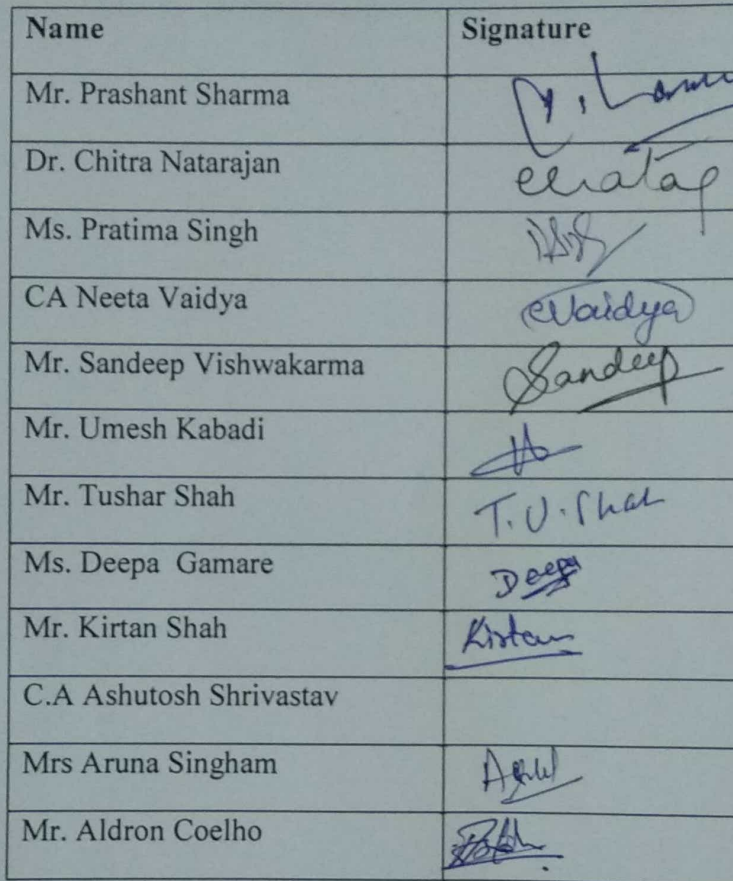 Name Signature
Mr. Prashant Sharma
Dr. Chitra Natarajan
Ms. Pratima Singh
CA Neeta Vaidya Vaidya
Mr. Sandeep Vishwakarma Sandeep
Mr. Umesh Kabadi
Mr. Tushar Shah T.U.Shah
Ms. Deepa Gamare Deepa
Mr. Kirtan Shah Kirtan
C.A Ashutosh Shrivastav
Mrs Aruna Singham
Mr. Aldron Coelho